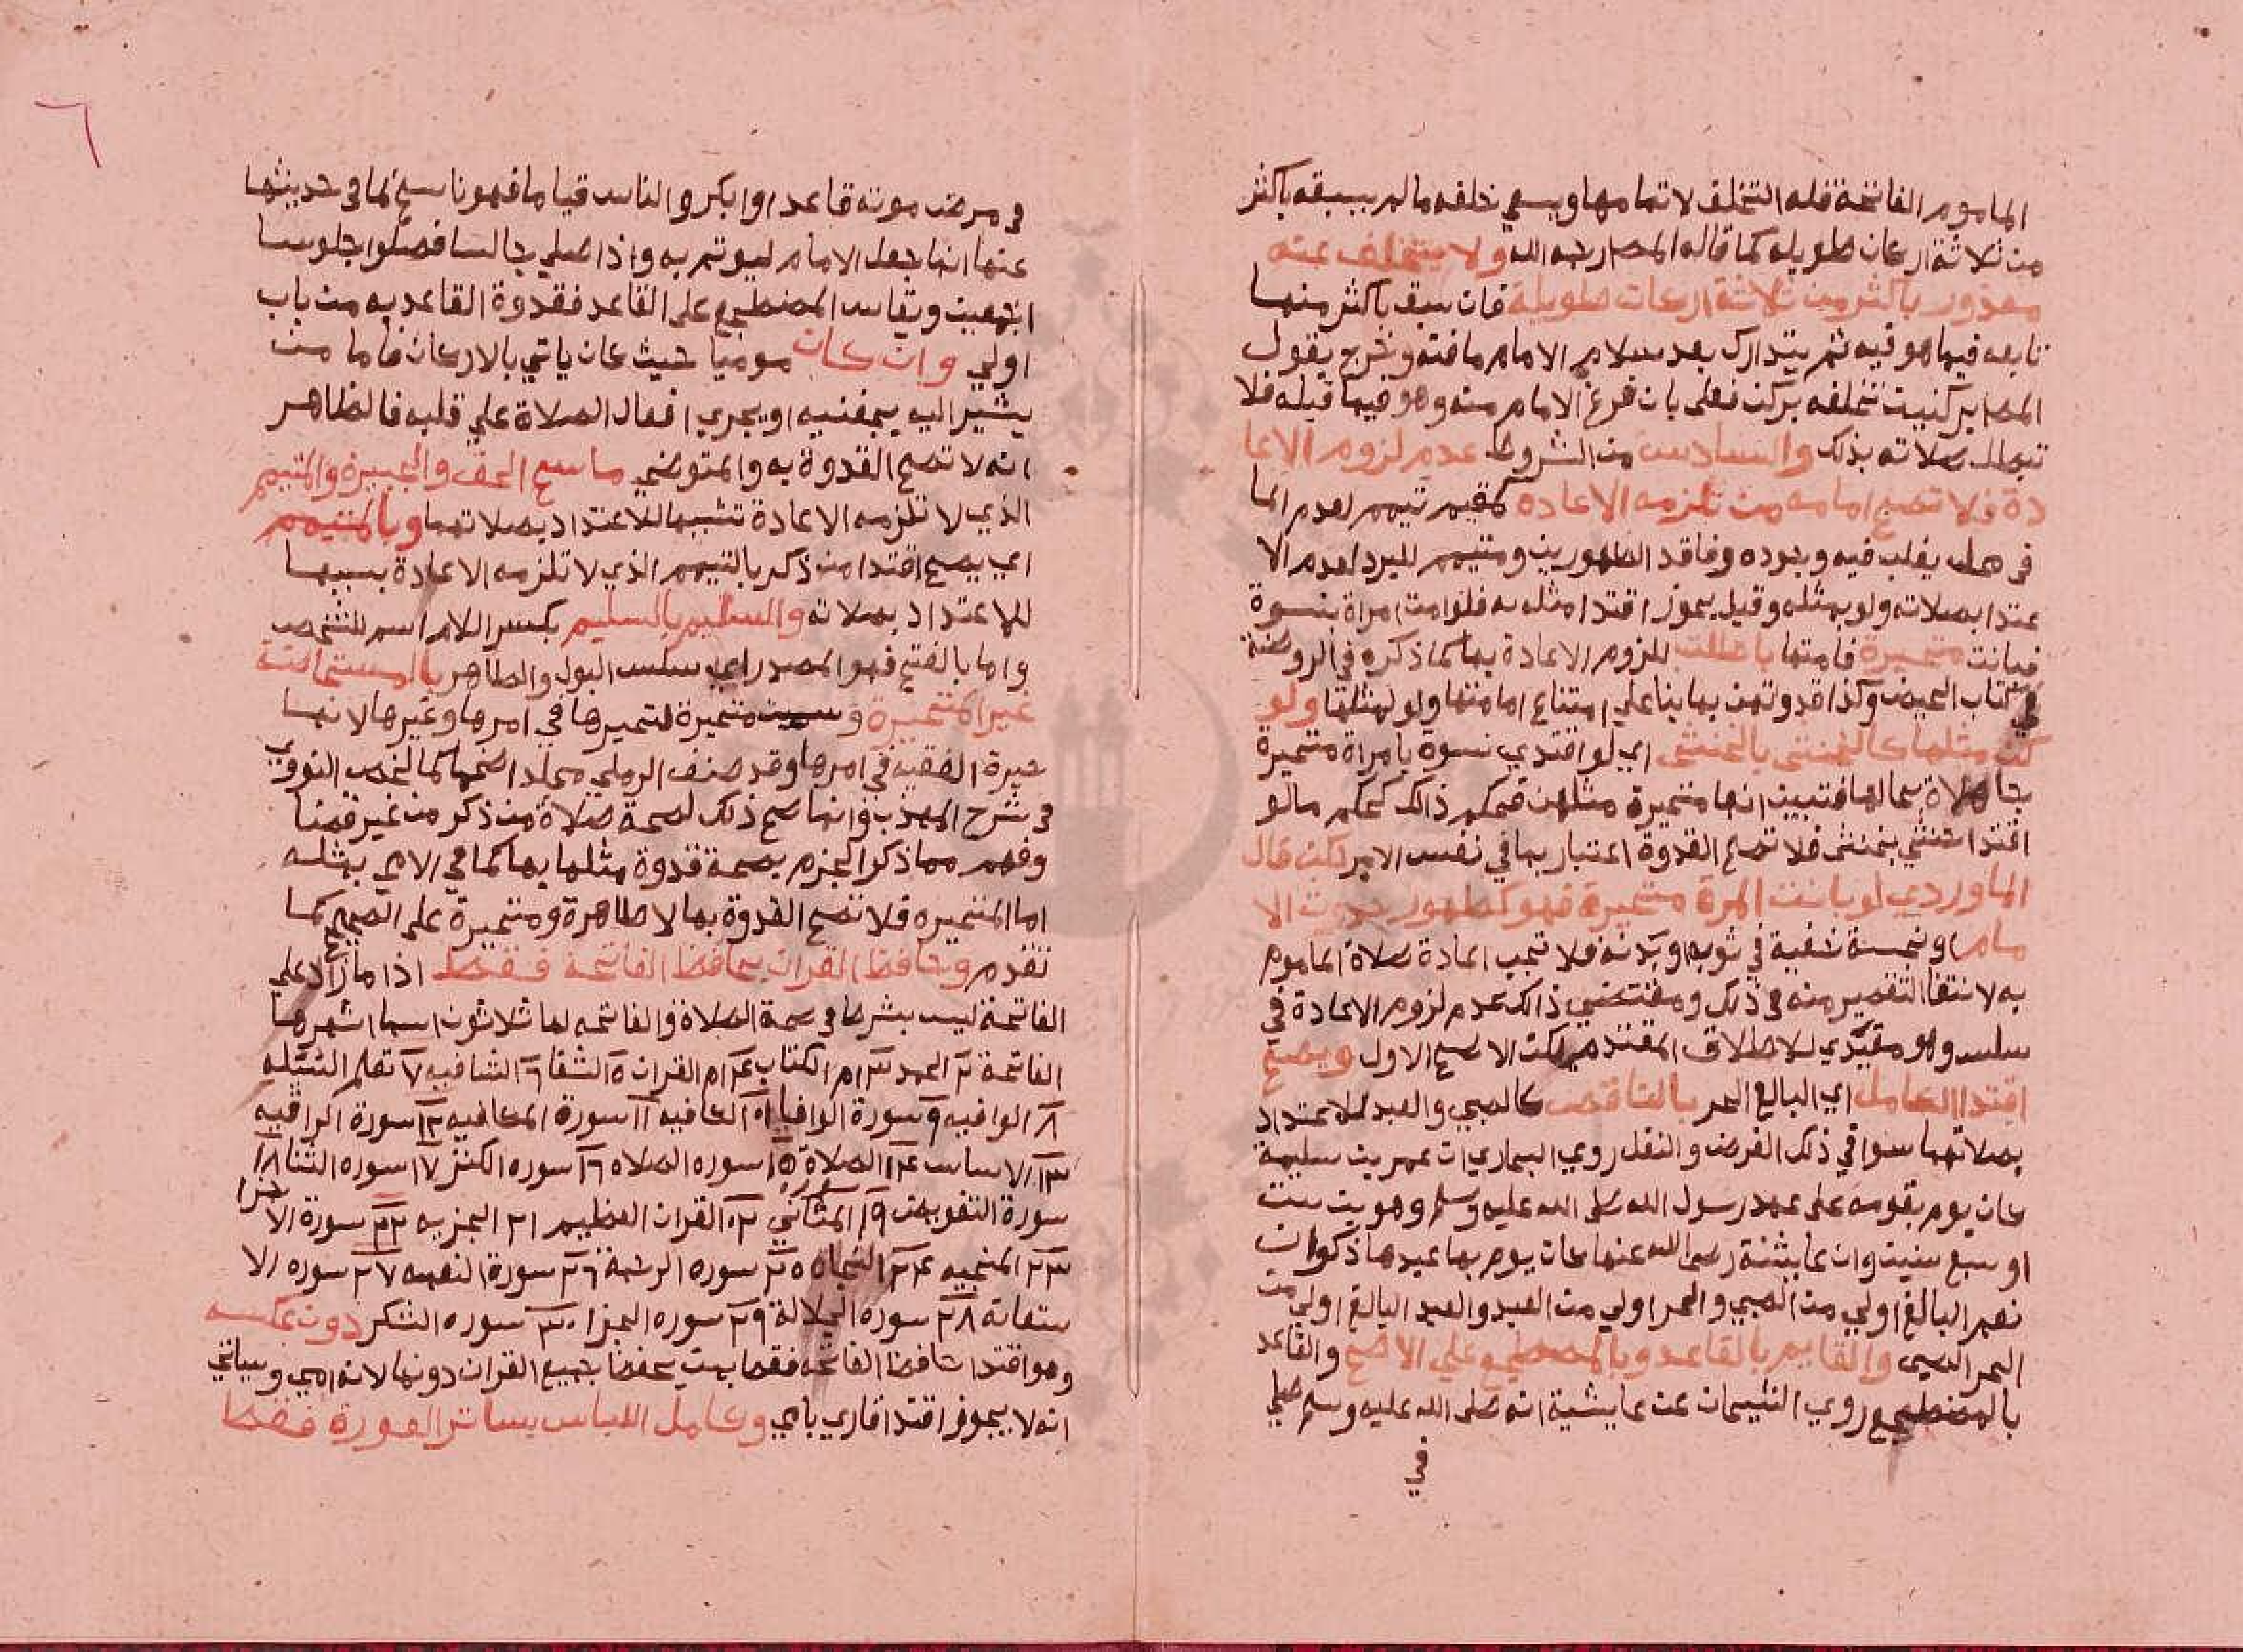 الماموم الفاتحة فله التخلف لاتمامها ويسعي خلفه ما لم يسبقه باكثر
من ثلاثة اركان طويله كما قاله المصـ رحمه الله ولا يتخلف عنه
معذور باكثر من ثلاثة اركان طويلة فان سبق باكثر منها
تابعه فيما هو فيه ثم يتدارك بعد سلام الامام ما فته وخرج يقول
المصـ بركنين تخلفه بركن فعلى بان فرغ الامام منه وهو فيما قبله فلا
تبطل صلاته بذلك والسادس من الشروط عدم لزوم الاعا
دة فلا تصح امامه من تلزمه الاعاده كمقيم تيمم لعدم الما
في محل يغلب فيه وجوده وفاقد الطهورين ومتيمم للبرد لعدم الا
عتدا بصلاته ولو بمثله وقيل يجوز اقتدا مثله به فلو امت امراة بنسوة
فبانت متحيرة فامتها باطلت للزوم الاعادة بها كما ذكره في الروضة
في كتاب الحيض وكذا قدوتهن بها بنا علي امتناع امامتها ولو لمثلها ولو
كن مثلها كالخنثى بالخنثى اي لو اقتدي نسوة بامراة متحيرة
جاهلاة بحالها فتبين انها متحيرة مثلهن فحكم ذالك كحكم ما لو
اقتدا خنثي بخنثى فلا تصح القدوة اعتبار بما في نفس الامر لكن قال
الماوردي لو بانت المرة متحيرة فهو كطهور حدث الا
مام او نجسة خفية في ثوبه او بدنه فلا تجب اعادة صلاة الماموم
به لانتفا التقصير منه في ذلك ومقتضي ذالك عدم لزوم الاعادة في
سلس وهو مقيدي للاطلاق المقتدم لكن الاصح الاول ويصح
اقتدا الكامل اي البالغ الحر بالناقص كالصبي والعبد للاعتداد
بصلاتهما سوا في ذلك الفرض والنفل روي البخاري ان عمر بن سليمة
كان يوم بقومه على عهد رسول الله صلى الله عليه وسلم وهو بن ست
او سبع سنين وان عايشة رضى الله عنها كان يوم بها عبدها ذكوان
نعم البالغ اولي من الصبي والحر اولي من العبد والعبد البالغ اولي من
الحر الصبي والقايم بالقاعد وبالمضطجع علي الاصح والقاعد
بالمضطجع روي الشيخان عن عايشية انه صلى الله عليه وسلم صلي
في
٦
في مرض موته قاعدا وابكر والناس قياما فهو ناسخ لما في حديثها
عنها انما جعل الامام ليوتم به واذا صلي جالسا فصلوا جلوسا
اجمعين ويقاس المضطجع على القاعد فقدوة القاعد به من باب
اولي وان كان موميا حيث كان ياتي بالاركان فاما من
يشير اليه بجفنيه او يجري افعال الصلاة علي قلبه فالظاهر
انه لا تصح القدوة به والمتوضي ماسح الخف والجبيرة والمتيمم
الذي لا تلزمه الاعادة تشبيها للاعتداد بصلاتهما وبالمتيمم
اي يصح اقتدا من ذكر بالتيمم الذي لا تلزمه الاعادة بسببها
للاعتداد بصلاته والسليم بالسليم بكسر اللام اسم للشخص
واما بالفتح فهو المصدر اي سلس البول والطاهر بالمستحاضة
غير المتحيرة وسميت متحيرة لتحيرها في امرها وغيرها لانها
حيرة الفقيه في امرها وقد صنف الرملي مجلد اضخما كما لخص النووي
في شرح المهذب وانما صح ذلك لصحة صلاة من ذكر من غير قضا
وفهم مما ذكر الجزم بصحة قدوة مثلها بها كما في الامي بمثله
اما المتحيره فلا تصح القدوة بها لا طاهرة ومتحيرة على الصحيح كما
تقدم وحافظ القران بحافظ الفاتحة فقط اذا ما زاد علي
الفاتحة ليس بشرط في صحة الصلاة والفاتحه لها ثلاثون اسما اشهرها
الفاتحة ٢ الحمد ٣ ام الكتاب ٤ ام القران ٥ الشفا ٦ الشافيه ٧ تعلم المسئله
٨ الوافيه ٩ سورة الوافيا ١٠ الكافيه ١١ سورة الكافيه ١٢ سورة الراقيه
١٣ الاساس ١٤ الصلاة ١٥ سوره الصلاه ١٦ سوره الكنز ١٧ سوره الثنا ١٨
سورة التفويض ١٩ سوره المثاني ٢٠ القران العظيم ٢١ الجزيه ٢٢ سورة الاجزا
٢٣ المنجيه ٢٤ النجاه ٢٥ سوره الرحمة ٢٦ سورة النعمه ٢٧ سوره الا
ستعانة ٢٨ سوره الجلالة ٢٩ سوره الجزا ٣٠ سوره الشكر دون عكسه
وهو اقتدا حافظ الفاتحه فقط بمن يحفظ جميع القران دونها لانه امي وسياتي
انه لا يجوز اقتدا قاري بامي وكامل اللباس بساتر العورة فقط